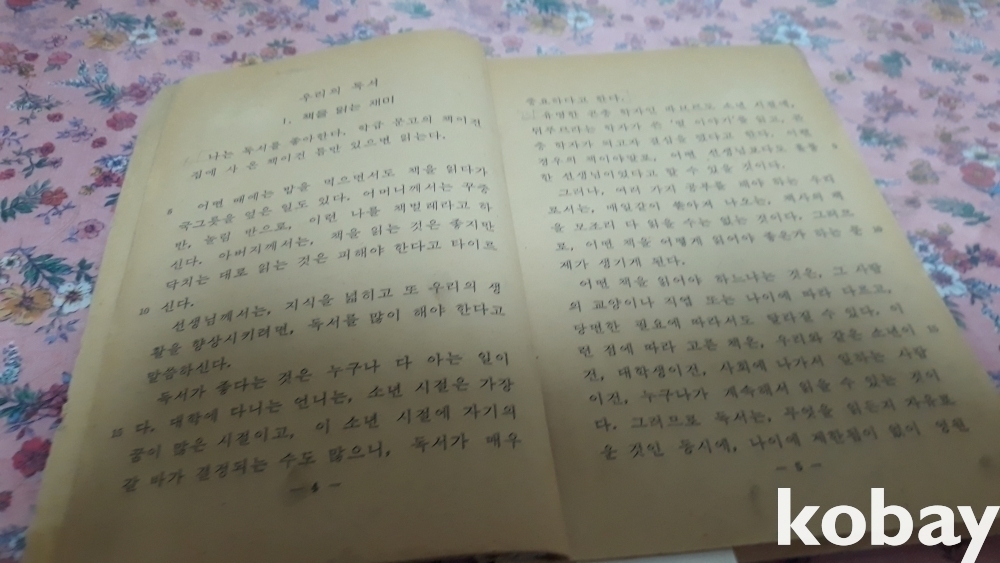 우리의 독서
1. 책을 읽는 재미
나는 독서를 좋아한다. 학급 문고의 책이건
집에 사 온 책이건 틈만 있으면 읽는다.
어떤 때에는 밥을 먹으면서도 책을 읽다가
국그릇을 엎은 일도 있다. 어머니께서는 꾸중
반, 놀림 반으로, 이런 나를 책벌레라고 하
신다. 아버지께서는, 책을 읽는 것은 좋지만
닥치는 대로 읽는 것은 피해야 한다고 타이르
10 신다.
선생님께서는, 지식을 넓히고 또 우리의 생
활을 향상시키려면, 독서를 많이 해야 한다고
말씀하신다.
독서가 좋다는 것은 누구나 다 아는 일이
15 다. 대학에 다니는 언니는, 소년 시절은 가장
꿈이 많은 시절이고, 이 소년 시절에 자기의
갈 바가 결정되는 수도 많으니, 독서가 매우
— 4 —
중요하다고 한다.
유명한 곤충 학자인 파브르도 소년 시절에,
뒤푸르라는 학자가 쓴 '벌 이야기'를 읽고, 곤
충 학자가 되고자 결심을 했다고 한다. 이런
경우의 책이야말로, 어떤 선생님보다도 훌륭 5
한 선생님이었다고 할 수 있을 것이다.
그러나, 여러 가지 공부를 해야 하는 우리
로서는, 매일같이 쏟아져 나오는, 책사의 책
을 모조리 다 읽을 수는 없는 것이다. 그러므
로, 어떤 책을 어떻게 읽어야 좋은가 하는 문 10
제가 생기게 된다.
어떤 책을 읽어야 하느냐는 것은, 그 사람
의 교양이나 직업 또는 나이에 따라 다르고,
당면한 필요에 따라서도 달라질 수 있다. 이
런 점에 따라 고른 책은, 우리와 같은 소년이 15
건, 대학생이건, 사회에 나가서 일하는 사람
이건, 누구나가 계속해서 읽을 수 있는 것이
다. 그러므로 독서는, 무엇을 읽든지 자유로
운 것인 동시에, 나이에 제한됨이 없이 영원
— 5 —
kobay